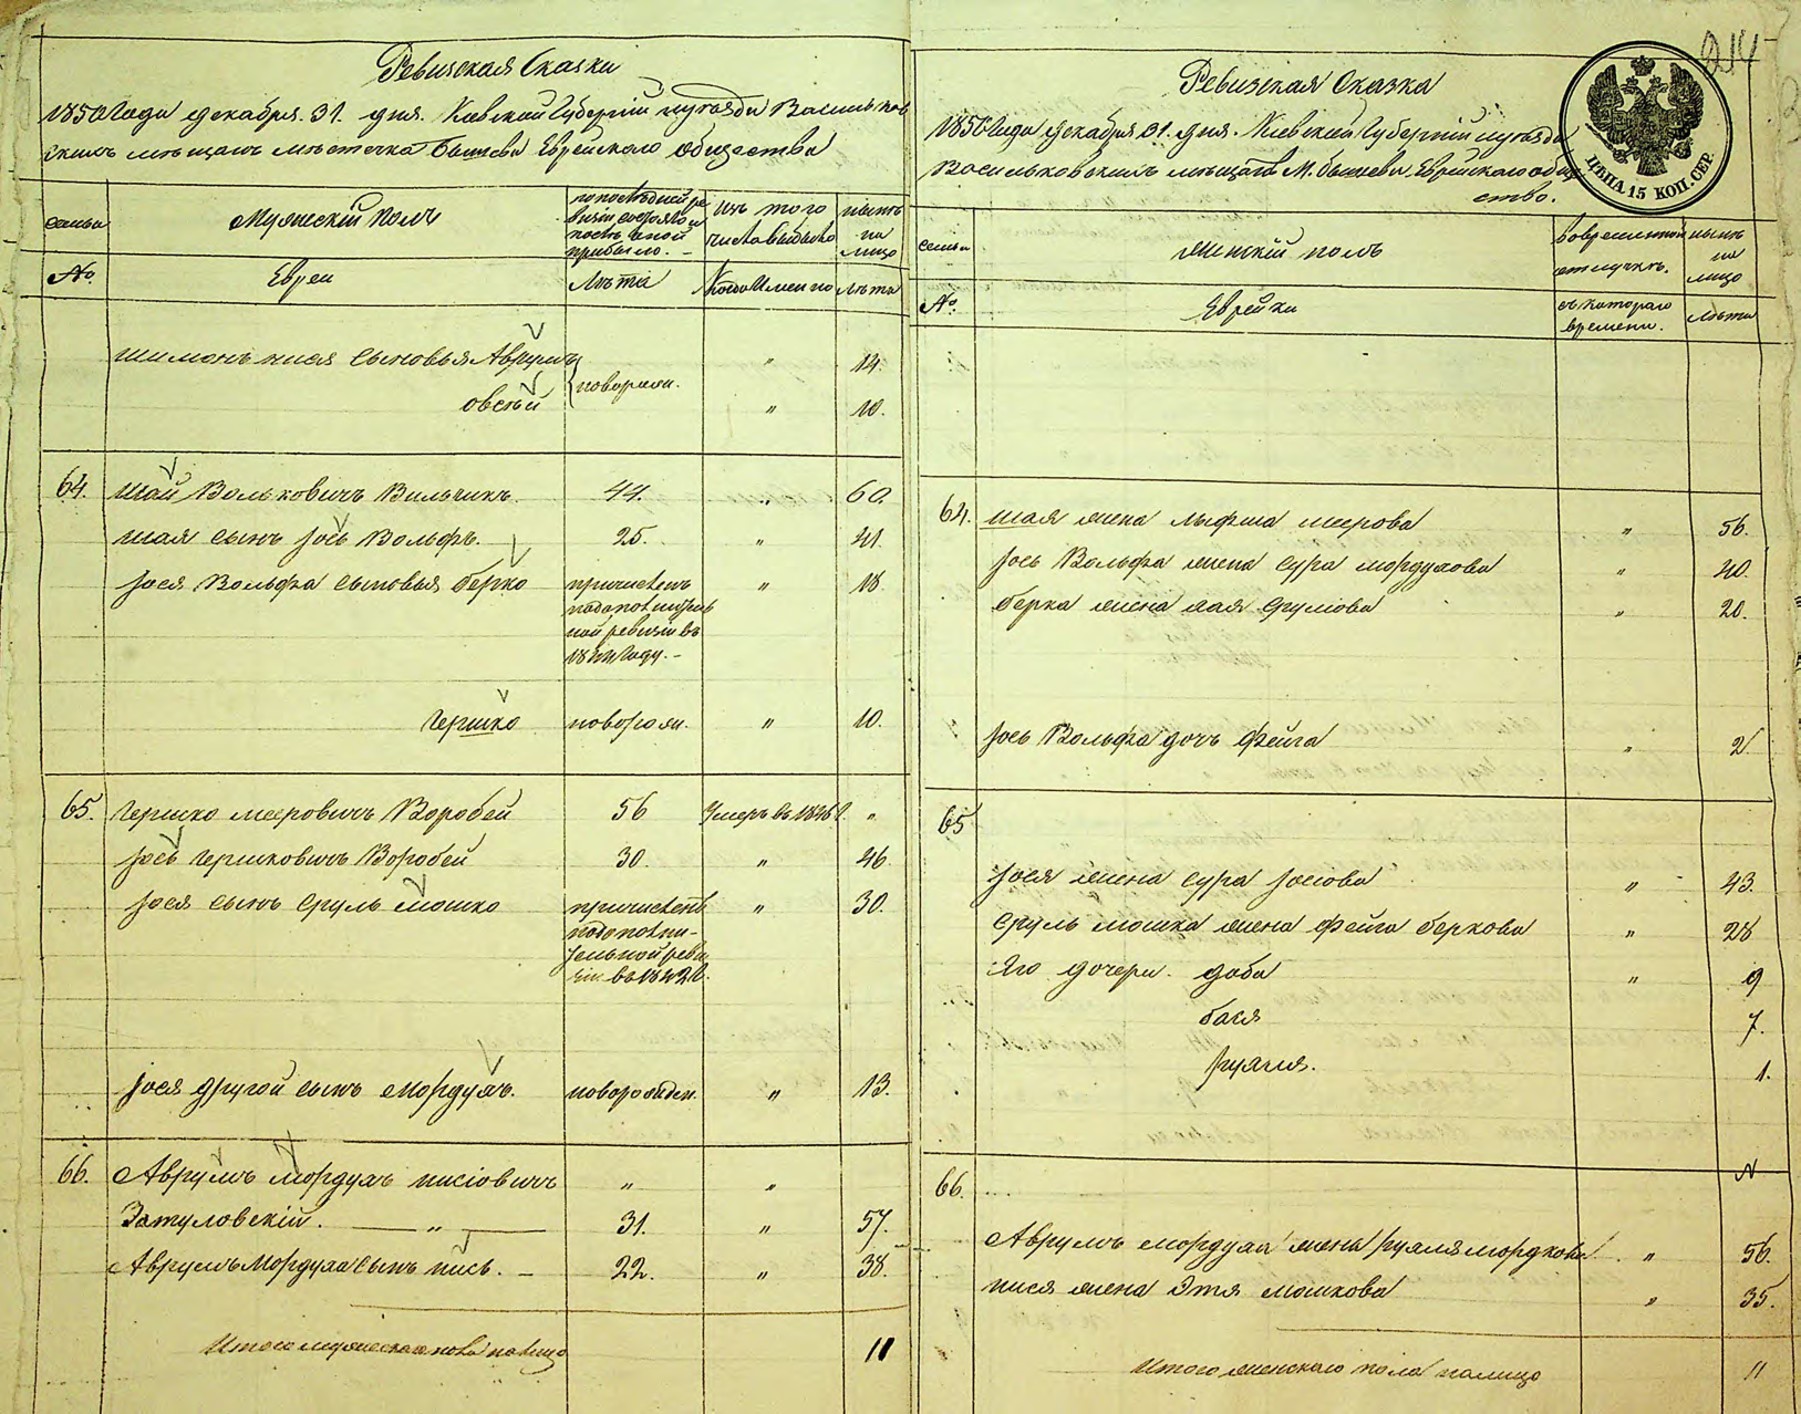 Ревизская Сказка
1850 Года декабря 31. дня. Киевской Губерніи и уѣзда Васильков
скихъ мѣщанъ мѣстечка Бышева Еврейского общества
семьи
Мужескій полъ
по последней ре
визіи состояло и
послѣ оной
прибыло. –
Изъ того
числа выбыло
нынѣ
на
лицо
№
Евреи
Лѣта
Когда Именно
Лѣта
Шимонъ сыновья Аврумъ
новорожд.
"
14.
овсѣй
"
10.
64.
Шай Вольковичъ Вильчикъ.
44.
"
60.
Шая сынъ Іось Вольфъ.
25.
"
41.
Іося Вольфа сыновья Берко
причисленъ
по дополнитель
ной ревизіи въ
1844 Году. –
"
18.
Гершко
новорожд.
"
10.
65.
Гершко Мееровичъ Воробей
56
Умеръ въ 1848 г.
"
Іось Гершковичъ Воробей
30.
"
46
Іося сынъ Сруль Мошко
причисленъ
по дополни–
тельной реви
зіи въ 1842 г.
"
30.
Іося другой сынъ Мордухъ.
новорожден.
"
13.
66.
Аврумъ Мордухъ Писіовичъ
"
"
Затуловскій. — " —
31.
"
57.
Аврумъ Мордуха сынъ Пись. –
22.
"
38.
Итого мужескаго пола на лицо
11
214
Ревизская Сказка
1850 Года декабря 31. дня. Киевской Губерніи и уѣзда
Васильковскихъ мѣщанъ М. Бышева Еврейского обще
ство.
ЦѢНА 15 КОП. СЕР.
семьи
Женскій полъ
во временной
отлучкѣ.
нынѣ
на
лицо
№.
Еврейки
съ котораго
времени.
Лѣта
64.
Шая жена Мееровa
"
56.
Іось Вольфа жена Сура Мордухова
"
40.
Берка жена Хая Срулiова
"
20.
Іось Вольфа дочь Фейга
"
2
65
Іося жена Сура Іосіова
"
43.
Сруль Мошка жена Фейга Беркова
"
28
Его дочери. Доба
"
9
Бася
7.
Рухля.
1.
66.
Аврумъ Мордуха жена Рухля Мордкова
"
56.
Пися жена Этя Мошкова
"
35.
Итого женскаго пола на лицо
11